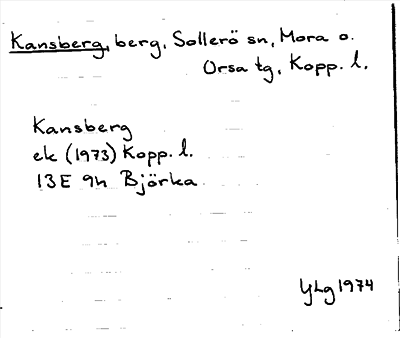 Kansberg, berg, Sollerö sn, Mora o.
Orsa tg, Kopp. l.
Kansberg
ek (1973) Kopp. l.
13E 9h Björka
YLg 1974